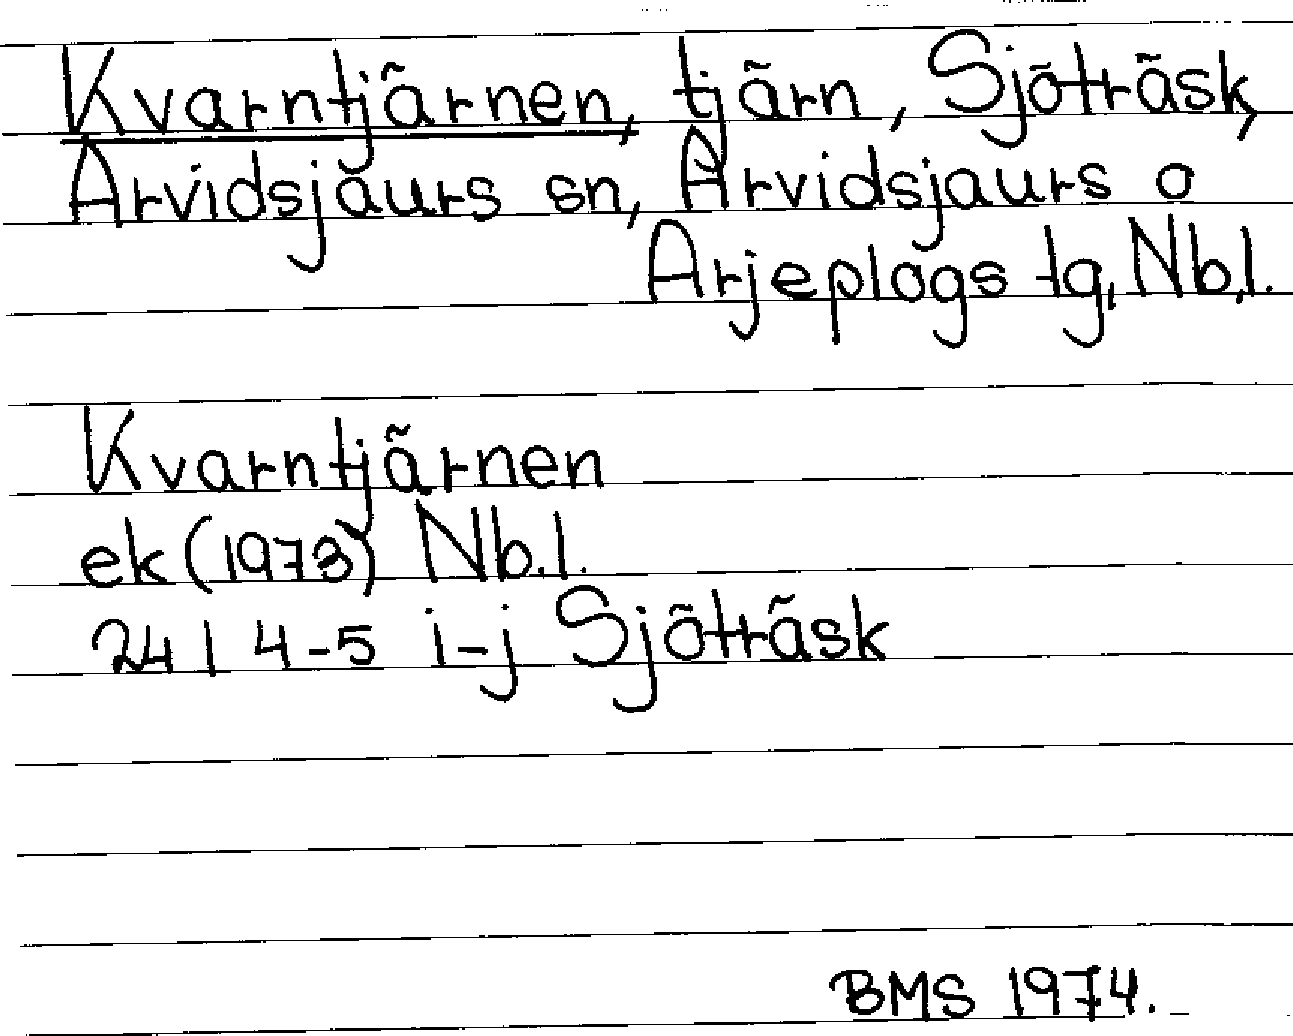 Kvarntjärnen, tjärn, Sjöträsk,
Arvidsjaurs sn, Arvidsjaurs o
Arjeplogs tg, Nb.l.
Kvarntjärnen
ek (1973) Nb.l.
24 I 4-5 i-j Sjöträsk
BMS 1974.